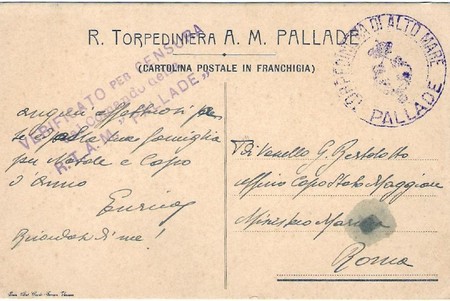 R. TORPEDINIERA A. M. PALLADE
(CARTOLINA POSTALE IN FRANCHIGIA)
TORPEDINIERA DI ALTO MARE
PALLADE
VERIFICATO PER CENSURA
Il Comando della
R. T. A. M. "PALLADE"
auguri affettuosi per
te e alla tua famiglia
per Natale e Capo
d'Anno
Enrico
Ricordati di me!
G. Bertolotto
Ufficio Capo Stato Maggiore
Ministero Marina
Roma